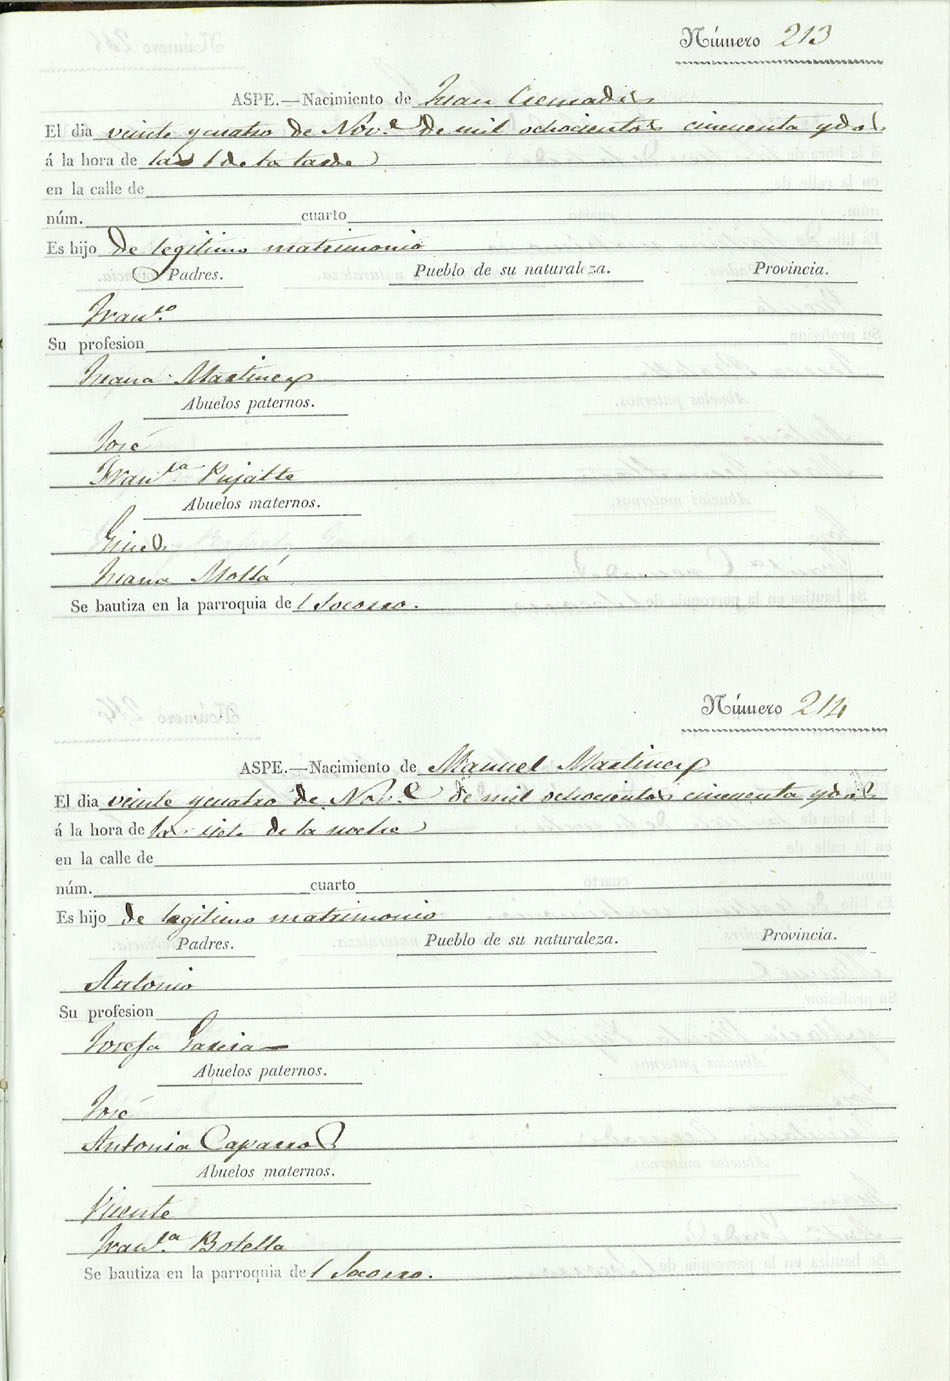 Número 213
ASPE.—Nacimiento de Juan Cremades
El dia veinte y cuatro de Nov.e de mil ochocientos cincuenta y dos
á la hora de las 1 de la tarde
en la calle de
núm. cuarto
Es hijo de legitimo matrimonio
Padres. Pueblo de su naturaleza. Provincia.
Fran.co
Su profesion
Martinez
Abuelos paternos.
José
Fran.ca Pujalte
Abuelos maternos.
Gines
Mollá
Se bautiza en la parroquia de l Socorro.
Número 214
ASPE.—Nacimiento de Manuel Martinez
El dia veinte y cuatro de Nov.e de mil ochocientos cincuenta y dos
á la hora de las siete de la noche
en la calle de
núm. cuarto
Es hijo de legitimo matrimonio
Padres. Pueblo de su naturaleza. Provincia.
Antonio
Su profesion
Josefa Garcia
Abuelos paternos.
José
Antonia Caparros
Abuelos maternos.
Vicente
Fran.ca Botella
Se bautiza en la parroquia de l Socorro.